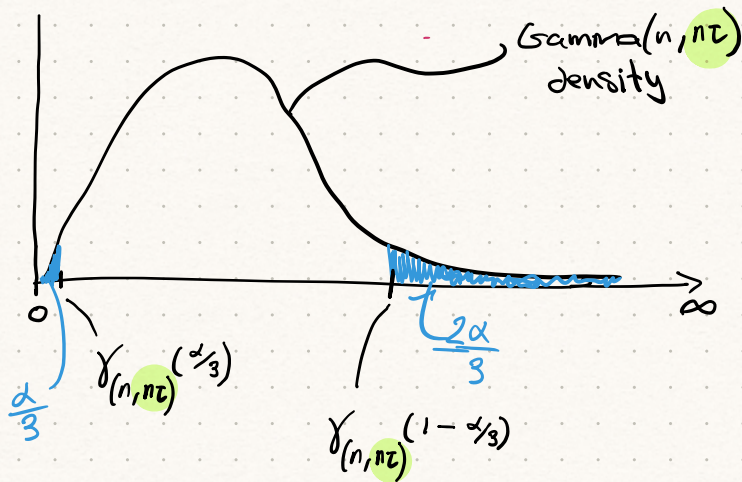 Gamma(n, nτ)
density
0
∞
α/3
γ(n, nτ)(α/3)
2α/3
γ(n, nτ)(1 - α/3)